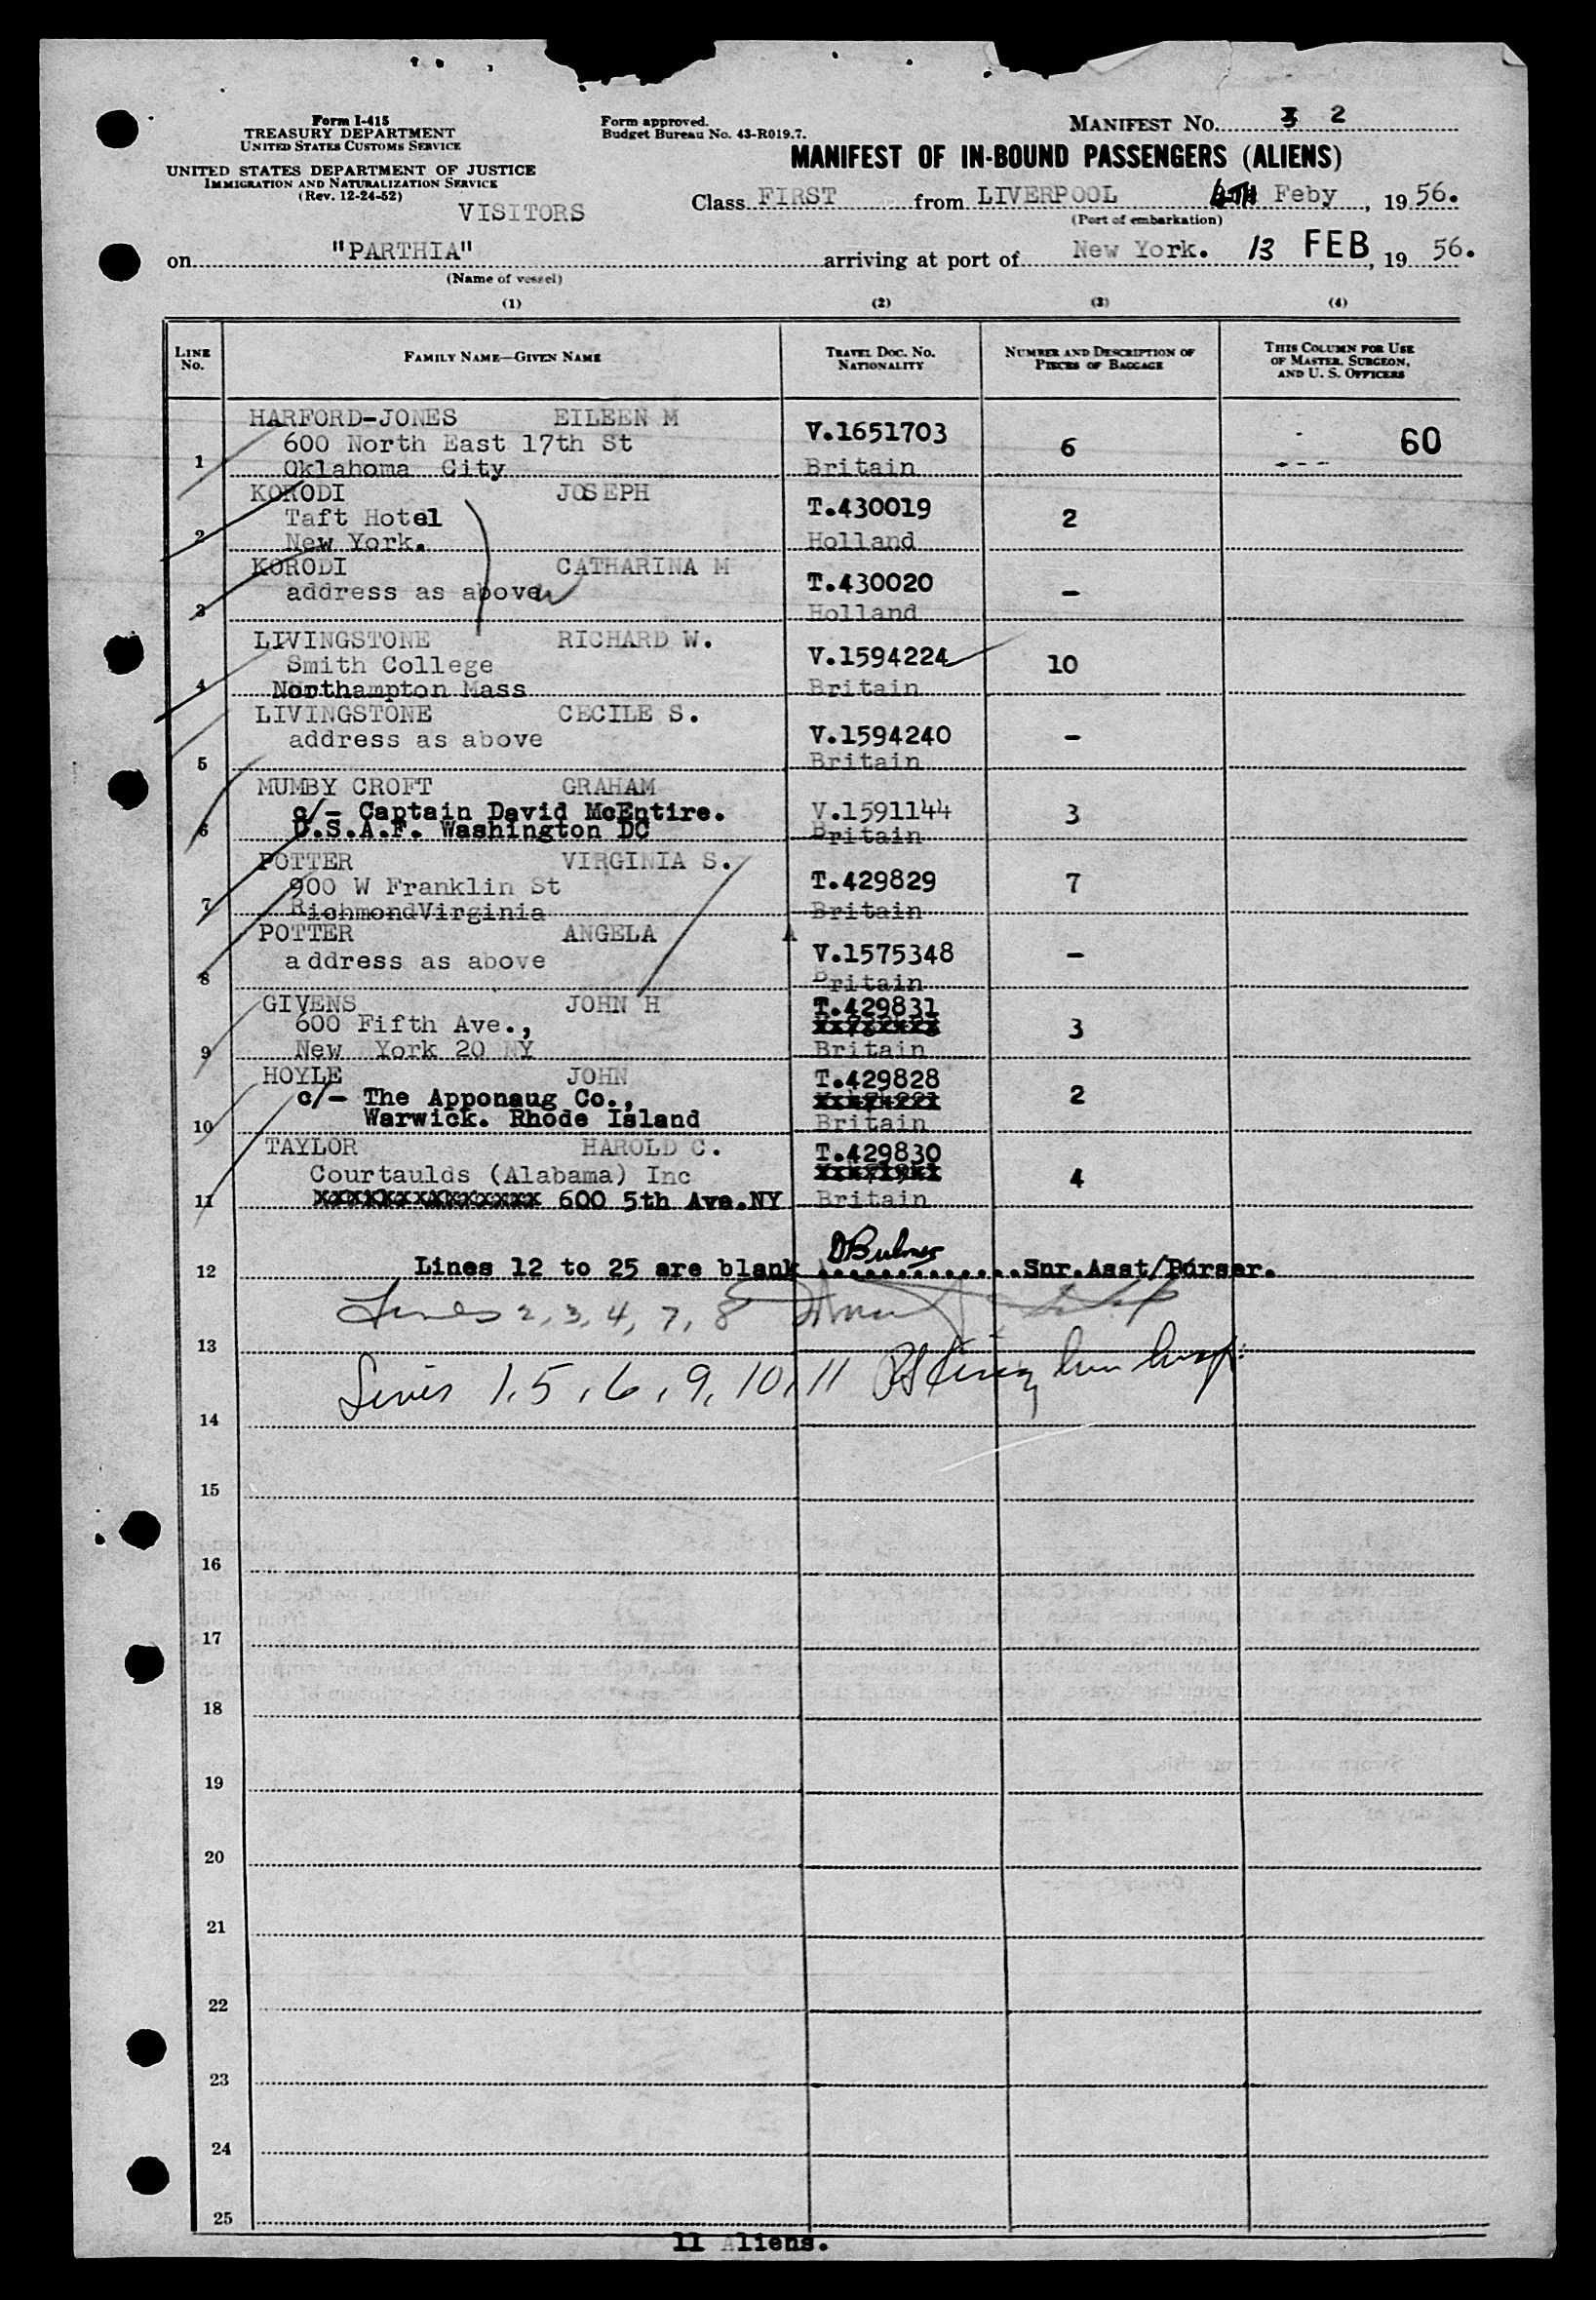 Form I-415
TREASURY DEPARTMENT
UNITED STATES CUSTOMS SERVICE
UNITED STATES DEPARTMENT OF JUSTICE
IMMIGRATION AND NATURALIZATION SERVICE
(Rev. 12-24-52)
VISITORS
Form approved.
Budget Bureau No. 43-R019.7.
MANIFEST No. 3 2
MANIFEST OF IN-BOUND PASSENGERS (ALIENS)
Class FIRST from LIVERPOOL Feby, 1956.
(Port of embarkation)
on "PARTHIA" arriving at port of New York. 13 FEB, 1956.
(Name of vessel)
(1) (2) (3) (4)
LINE No. FAMILY NAME—GIVEN NAME TRAVEL DOC. NO. NATIONALITY NUMBER AND DESCRIPTION OF PIECES OF BAGGAGE THIS COLUMN FOR USE OF MASTER, SURGEON, AND U. S. OFFICERS
HARFORD-JONES EILEEN M V.1651703 6 60
600 North East 17th St
1 Oklahoma City Britain
KORODI JOSEPH T.430019 2
Taft Hotel
2 New York. Holland
KORODI CATHARINA M T.430020 -
address as above
3 Holland
LIVINGSTONE RICHARD W. V.1594224 10
Smith College
4 Northampton Mass Britain
LIVINGSTONE CECILE S. V.1594240 -
address as above
5 Britain
MUMBY CROFT GRAHAM V.1591144 3
c/- Captain David McEntire.
6 U.S.A.F. Washington DC Britain
POTTER VIRGINIA S. T.429829 7
900 W Franklin St
7 RichmondVirginia Britain
POTTER ANGELA A V.1575348 -
address as above
8 Britain
GIVENS JOHN H T.429831 3
600 Fifth Ave.,
9 New York 20 NY Britain
HOYLE JOHN T.429828 2
c/- The Apponaug Co.,
10 Warwick. Rhode Island Britain
TAYLOR HAROLD C. T.429830 4
Courtaulds (Alabama) Inc
11 600 5th Ave.NY Britain
12 Lines 12 to 25 are blank DBulmer Snr.Asst/Purser.
Lines 2, 3, 4, 7, 8
13
Lines 1, 5, 6, 9, 10, 11
14
15
16
17
18
19
20
21
22
23
24
25
11 Aliens.